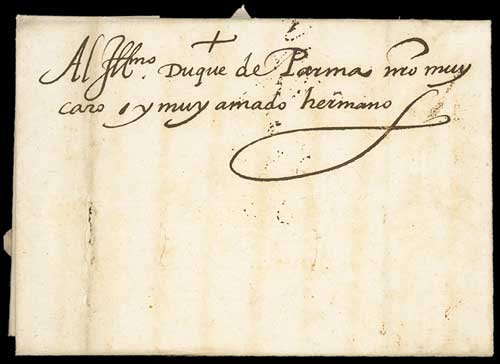 Al Ill.mo Duque de Parma nr̃o muy
caro y muy amado herm̃ano